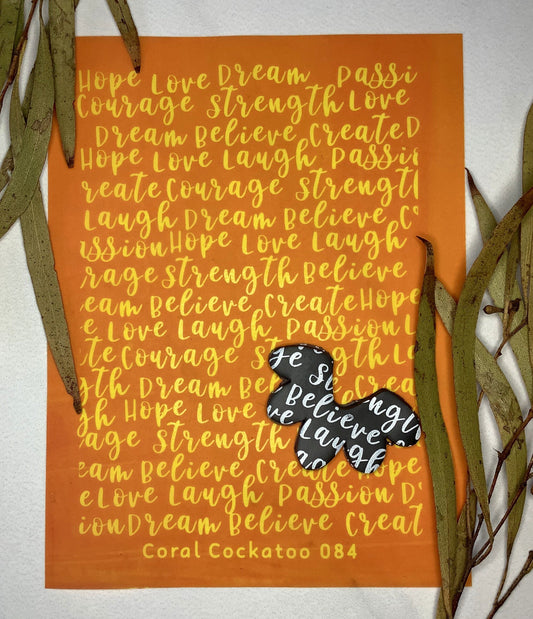 Hope Love Dream Passi
Courage Strength Love
Dream Believe Create D
Hope Love Laugh Passion
reate Courage Strength
Laugh Dream Believe C
assion Hope Love Laugh
rage Strength Believe
eam Believe Create Hope
e Love Laugh Passion L
ate Courage Strength La
gth Dream Believe
gh Hope Love
age Strength
eam Believe Create Hope
e Love Laugh Passion D
ion Dream Believe Creat
Coral Cockatoo 084
ge St
ength
Believe
ve Laugh